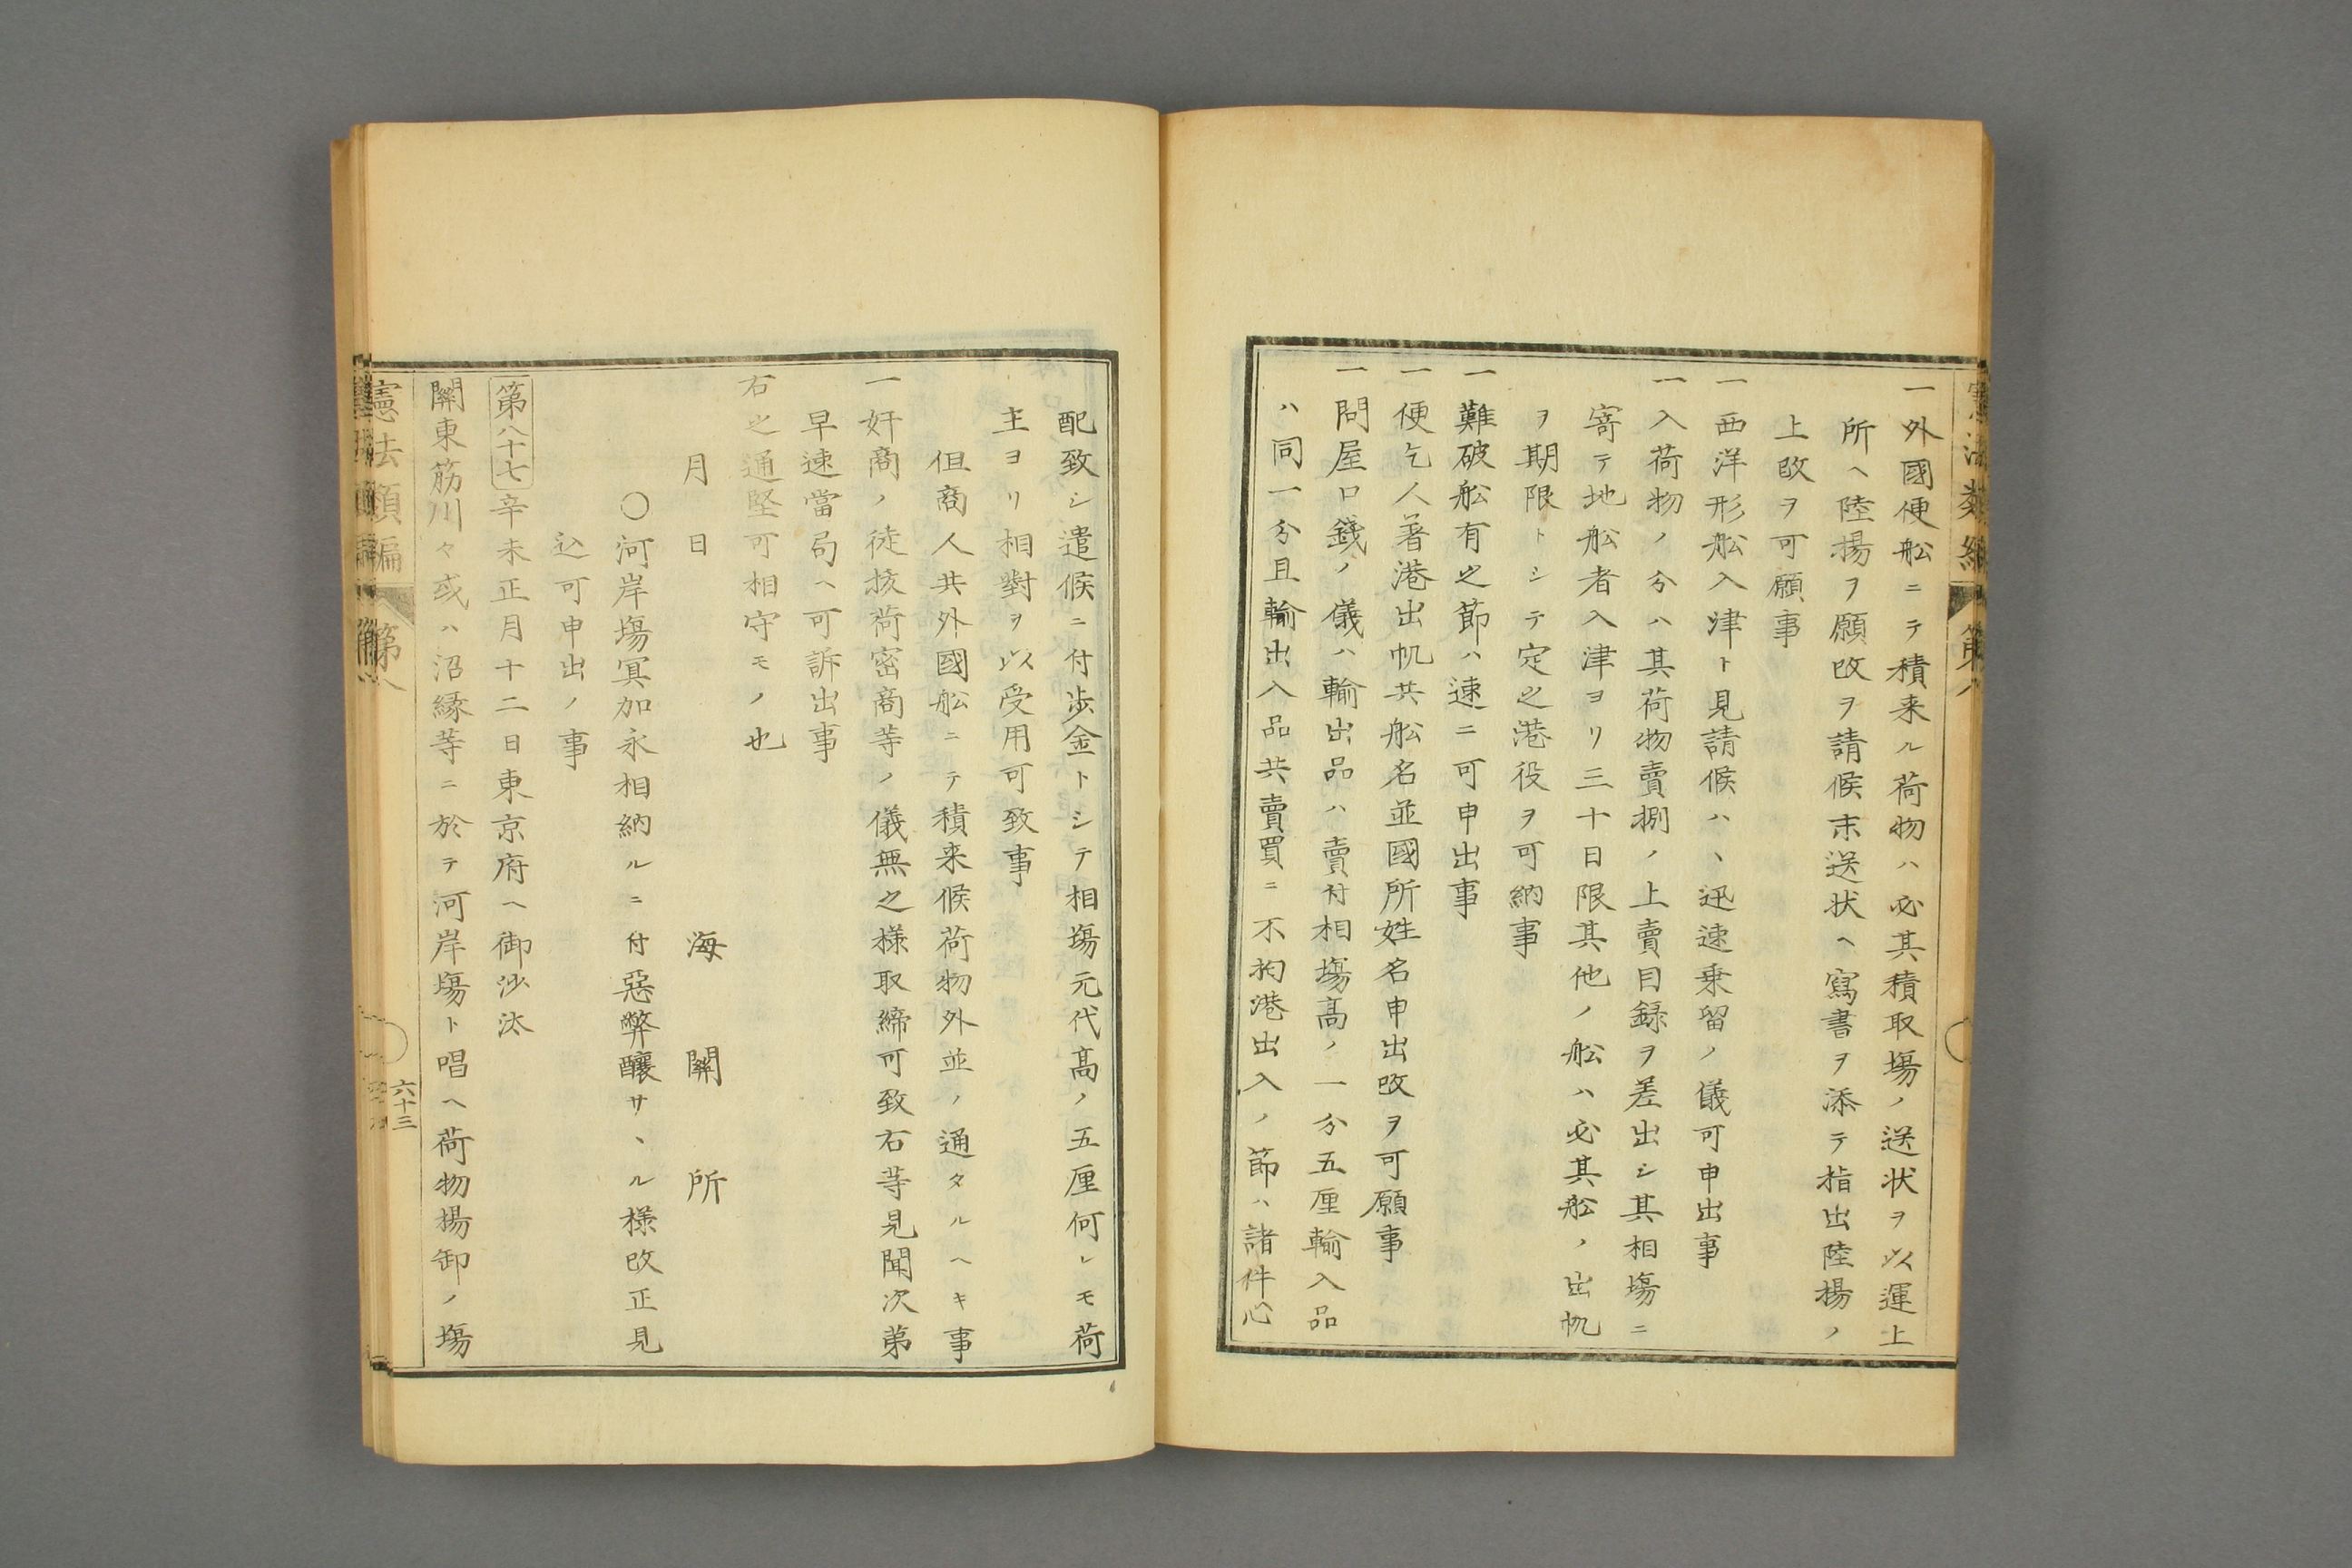 一外國便舩ニテ積来ル荷物ハ必其積取塲ノ送状ヲ以運上
所ヘ陸揚ヲ願改ヲ請候末送状ヘ寫書ヲ添テ指出陸揚ノ
上改ヲ可願事
一西洋形舩入津ト見請候ハヽ迅速乗留ノ儀可申出事
一入荷物ノ分ハ其荷物賣捌ノ上賣目録ヲ差出シ其相塲ニ
寄テ地舩者入津ヨリ三十日限其他ノ舩ハ必其舩ノ出帆
ヲ期限トシテ定之港役ヲ可納事
一難破舩有之節ハ速ニ可申出事
一便乞人著港出帆共舩名並國所姓名申出改ヲ可願事
一問屋口錢ノ儀ハ輸出品ハ賣付相塲髙ノ一分五厘輸入品
ハ同一分且輸出入品共賣買ニ不拘港出入ノ節ハ諸件心
配致シ遣候ニ付歩金トシテ相塲元代髙ノ五厘何レモ荷
主ヨリ相對ヲ以受用可致事
但商人共外國舩ニテ積来候荷物外並ノ通タルヘキ事
一奸商ノ徒抜荷密商等ノ儀無之様取締可致右等見聞次第
早速當局ヘ可訴出事
右之通堅可相守モノ也
月日　海關所
〇河岸塲冥加永相納ルニ付惡弊釀サヽル様改正見
込可申出ノ事
第八十七 辛未正月十二日東京府ヘ御沙汰
關東筋川々或ハ沼縁等ニ於テ河岸塲ト唱ヘ荷物揚卸ノ塲
憲法類編 第八
六十三